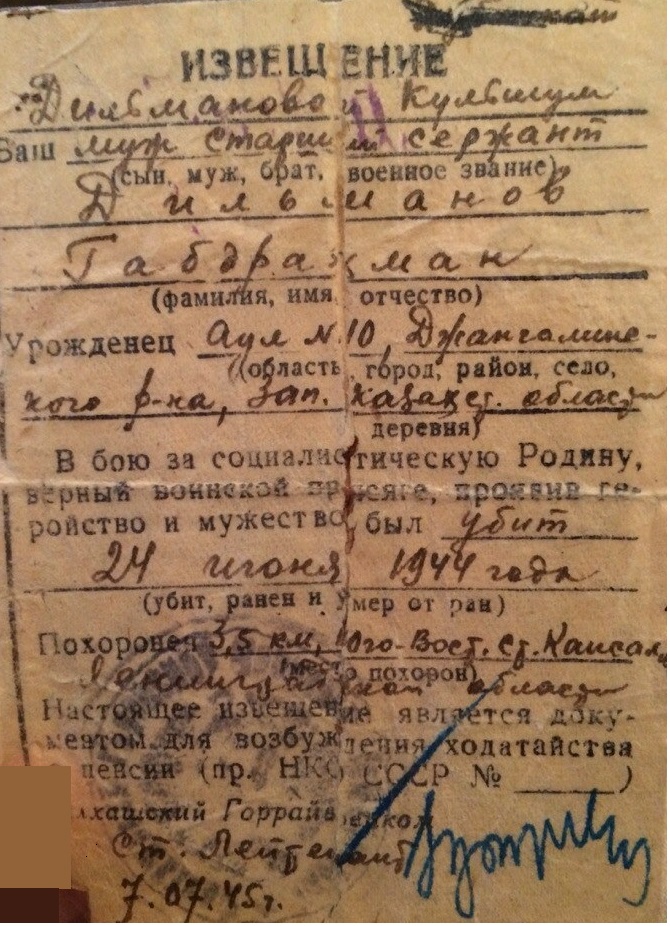 ИЗВЕЩЕНИЕ
Дильмановой Кульшум
Ваш муж старший сержант
(сын, муж, брат, военное звание)
Дильманов
Габдрахман
(фамилия, имя отчество)
Урожденец Аул №10, Джангалинс-
(область, город, район, село,
кого р-на, Зап. Казахст. области
деревня)
В бою за социалистическую Родину,
верный воинской присяге, проявив ге-
ройство и мужество, был убит
24 июня 1944 года
(убит, ранен и умер от ран)
Похоронен 3,5 км, Юго-Вост. ст.
(место похорон)
Ленинградской области
Настоящее извещение является доку-
ментом для возбуждения ходатайства
пенсии (пр. НКО СССР № ______)
лхашский Горрайвоенком
Ст. Лейтенант
7.07.45г.